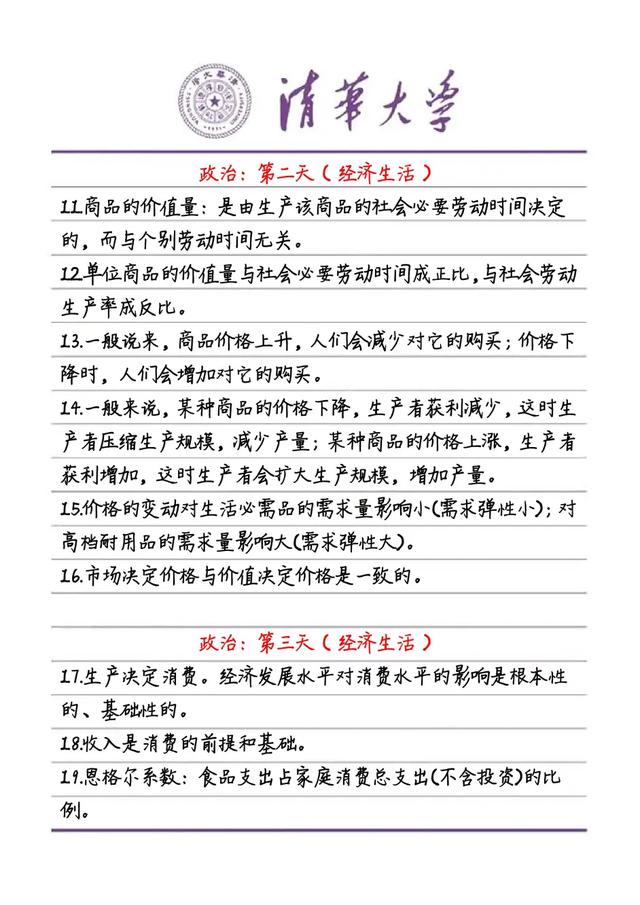 清華大学
政治：第二天（经济生活）
11.商品的价值量：是由生产该商品的社会必要劳动时间决定
的，而与个别劳动时间无关。
12.单位商品的价值量与社会必要劳动时间成正比，与社会劳动
生产率成反比。
13.一般说来，商品价格上升，人们会减少对它的购买；价格下
降时，人们会增加对它的购买。
14.一般来说，某种商品的价格下降，生产者获利减少，这时生
产者压缩生产规模，减少产量；某种商品的价格上涨，生产者
获利增加，这时生产者会扩大生产规模，增加产量。
15.价格的变动对生活必需品的需求量影响小(需求弹性小)；对
高档耐用品的需求量影响大(需求弹性大)。
16.市场决定价格与价值决定价格是一致的。
政治：第三天（经济生活）
17.生产决定消费。经济发展水平对消费水平的影响是根本性
的、基础性的。
18.收入是消费的前提和基础。
19.恩格尔系数：食品支出占家庭消费总支出(不含投资)的比
例。